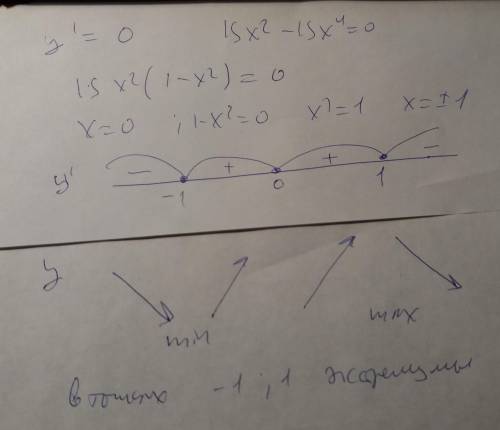 y' = 0 15x² - 15x⁴ = 0
15 x² (1 - x²) = 0
x = 0 ; 1 - x² = 0 x² = 1 x = ±1
y' - + + -
-1 0 1
y
min max
в точках -1 ; 1 экстремумы